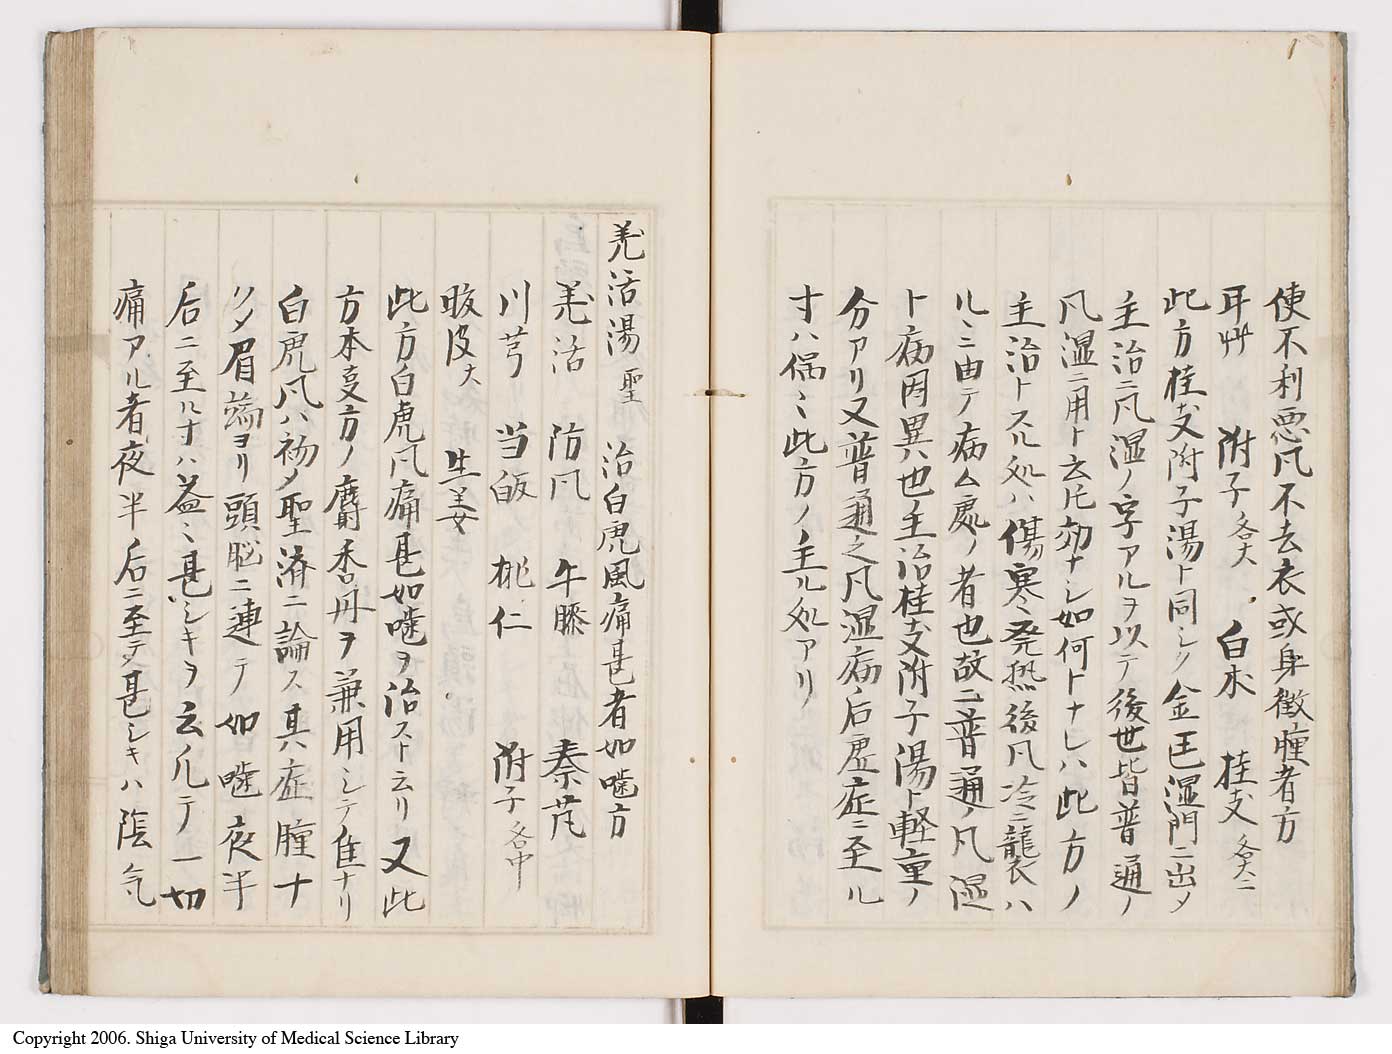 便不利悪凡不去衣或身微瘇者方
耳艸 附子各大 白朮 桂支各大二
此方桂支附子湯ト同シク金匞湿門ニ出メ
主治ニ凡湿ノ字アルヲ以テ後世皆普通ノ
凡湿ニ用ト云𪜈効ナシ如何トナレハ此方ノ
主治トスル処ハ傷寒発熱後凡冷ニ襲ハ
ルヽニ由テ病ム處ノ者也故ニ普通ノ凡湿
ト病因異ハ也主治桂支附子湯ト軽重ノ
分アリ又普通之凡湿病后虚症ニ至ル
寸ハ偶〻此方ノ主ル処アリ
羌活湯 聖 治白虎風痛甚者如嚙方
羌活 防凡 牛膝 秦艽
川芎 当皈 桃仁 附子各中
皮大 生姜
此方白虎凡痛甚如嚙ヲ治スト云リ又此
方本叓方ノ麝香丹ヲ兼用シテ佳ナリ
白虎凡ハ初メ聖済ニ論ス其症腫ナ
クメ眉端ヨリ頭脳ニ連テ如嚙夜半
后ニ至ル寸ハ益〻甚シキヲ云凡テ一切
痛アル者夜半后ニ至テ甚シキハ陰気
Copyright 2006. Shiga University of Medical Science Library